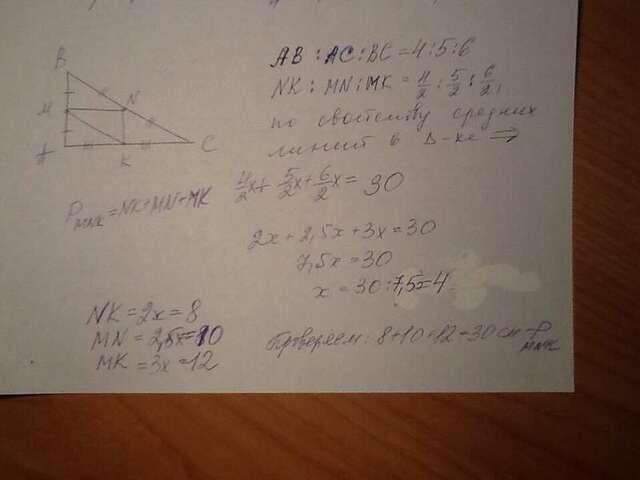 B
M
N
A
K
C
AB : AC : BC = 4 : 5 : 6
NK : MN : MK = 4/2 : 5/2 : 6/2,
по свойству средних
линий в Δ-ке ⇒
P MNK = NK+MN+MK 4/2x + 5/2x + 6/2x = 30
2x + 2,5x + 3x = 30
7,5x = 30
x = 30 : 7,5 = 4
NK = 2x = 8
MN = 2,5x = 10
MK = 3x = 12
Проверяем: 8+10+12=30 см - P MNK